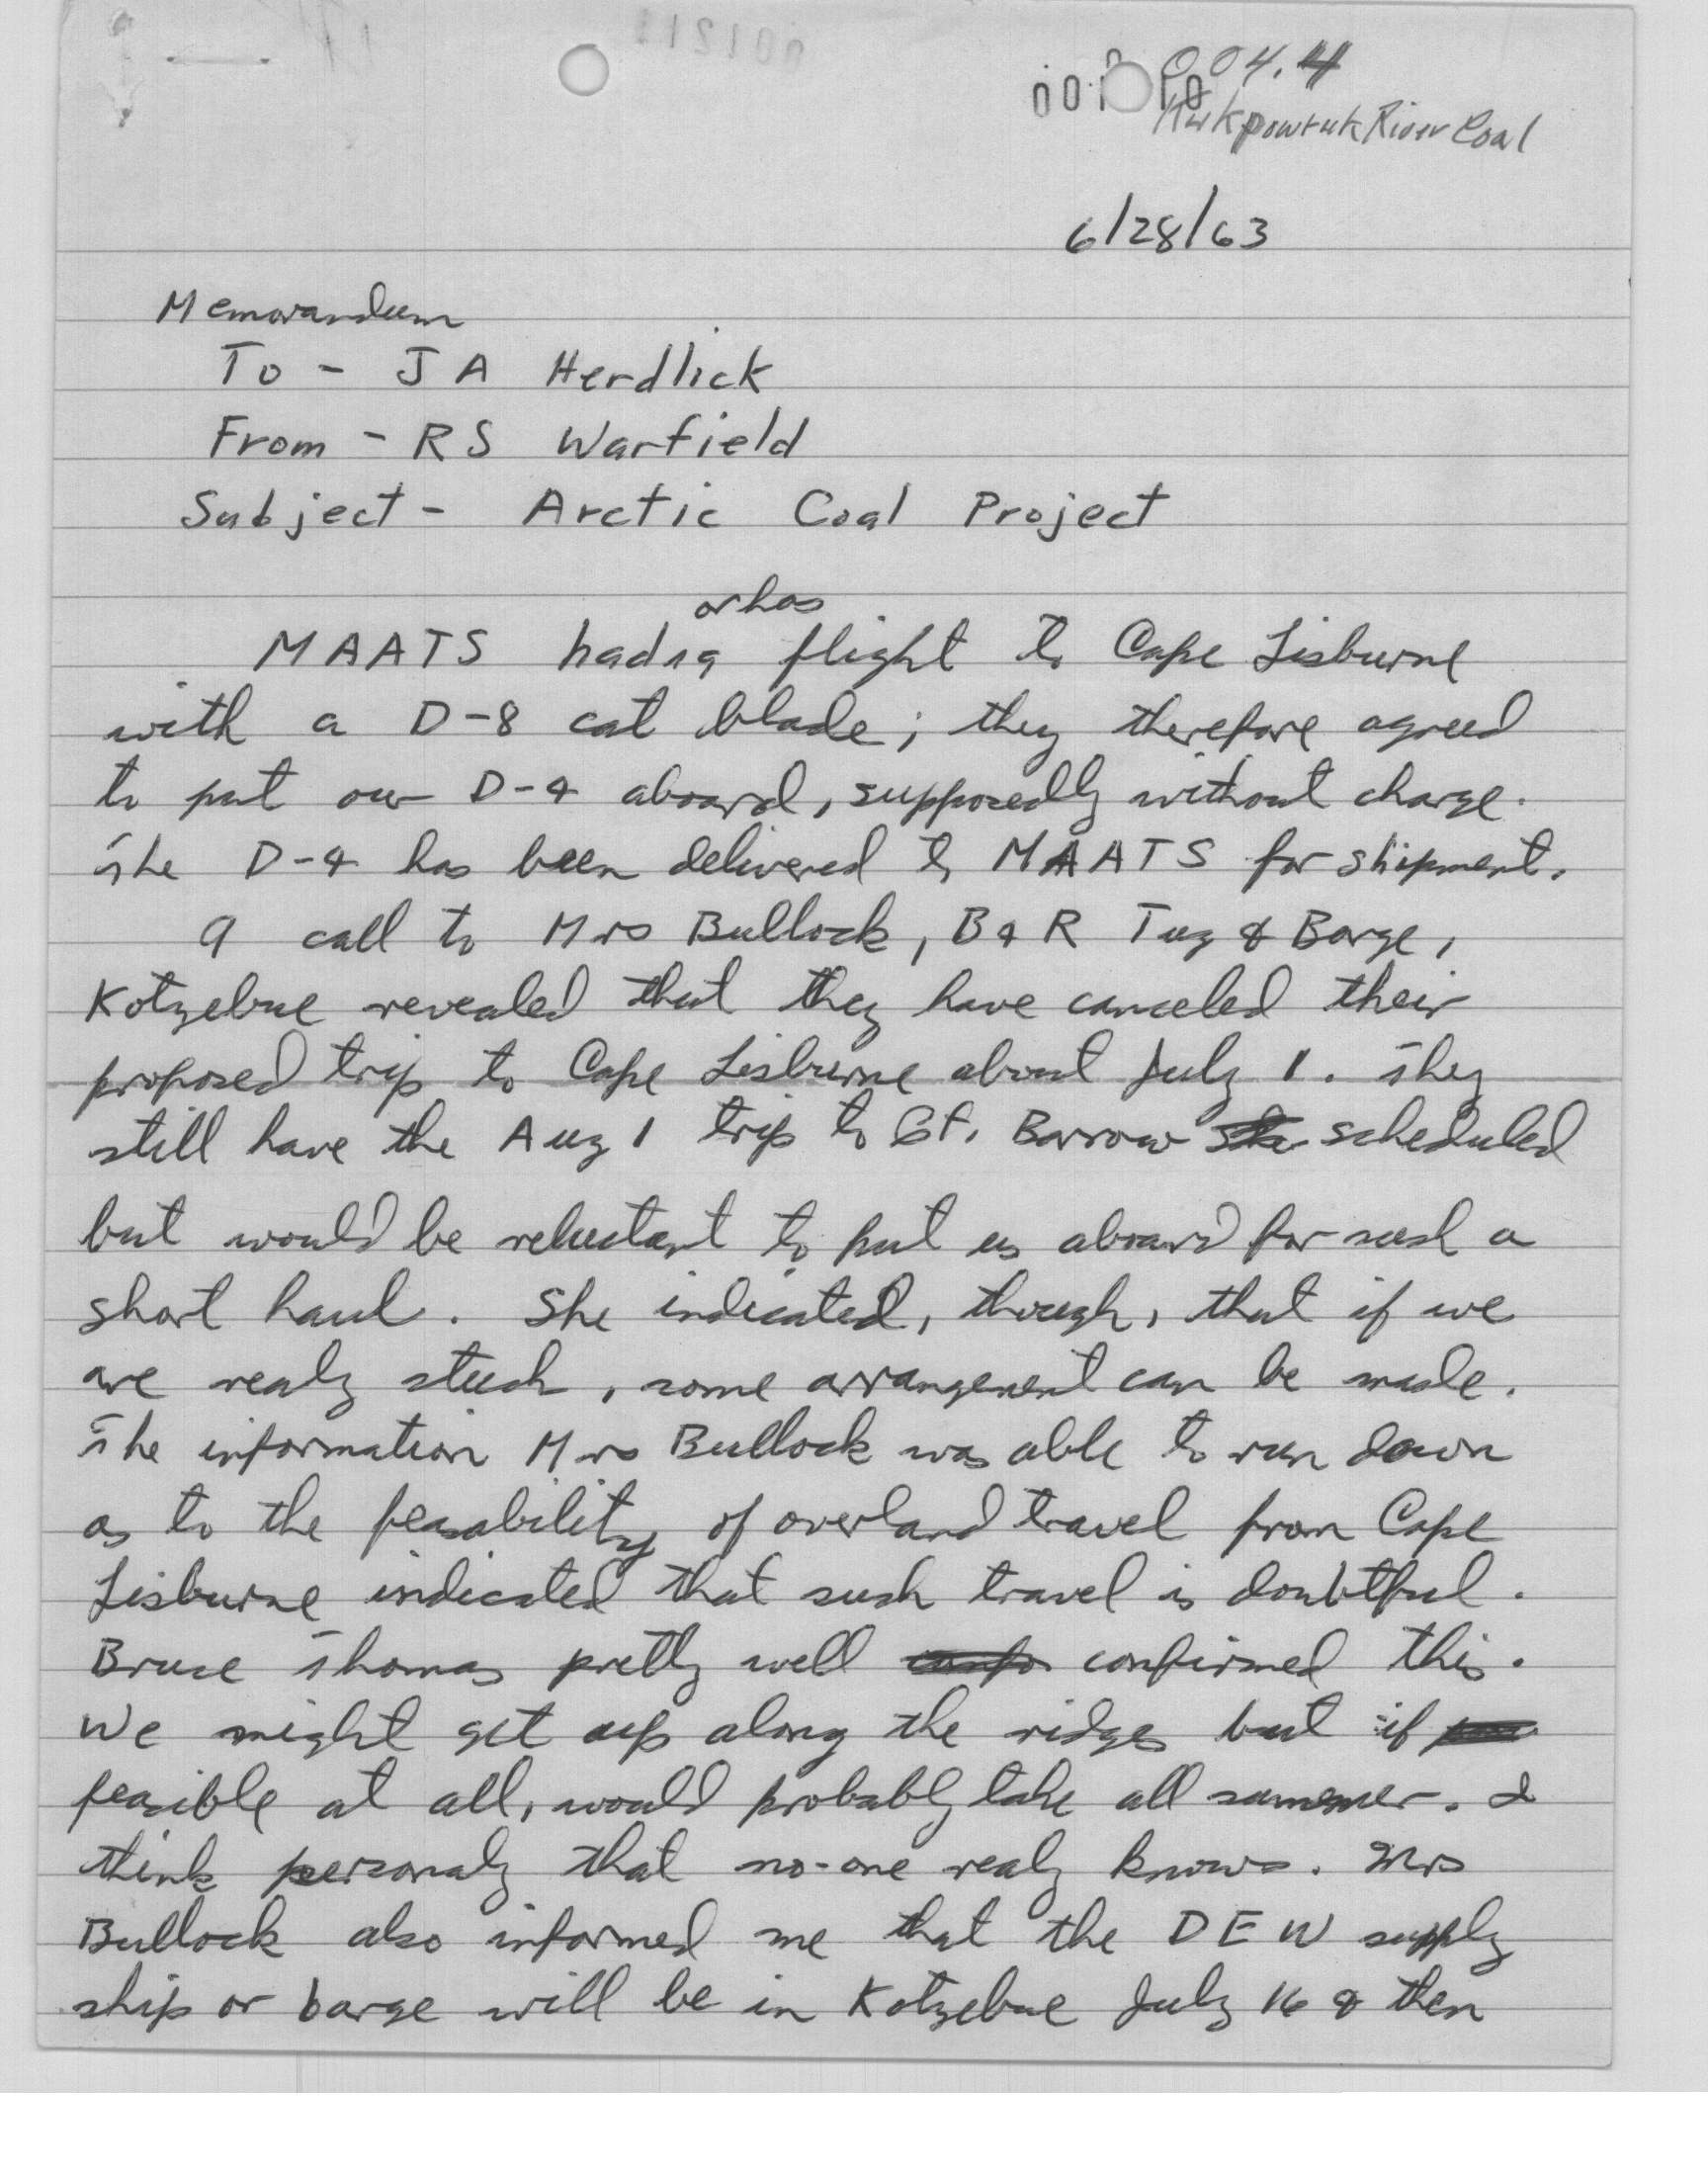 004.4
Kukpowruk River Coal
6/28/63
Memorandum
To - J A Herdlick
From - RS Warfield
Subject - Arctic Coal Project
or has
MAATS had a flight to Cape Lisburne
with a D-8 cat blade; they therefore agreed
to put our D-4 aboard, supposedly without charge.
The D-4 has been delivered to MAATS for shipment.
A call to Mrs Bullock, B & R Tug & Barge,
Kotzebue revealed that they have canceled their
proposed trip to Cape Lisburne about July 1. They
still have the Aug 1 trip to Pt. Barrow scheduled
but would be reluctant to put us aboard for such a
short haul. She indicated, though, that if we
are realy stuck, some arrangement can be made.
The information Mrs Bullock was able to run down
as to the feasability of overland travel from Cape
Lisburne indicated that such travel is doubtful.
Bruce Thomas pretty well confirmed this.
We might get up along the ridges but if
feasible at all, would probably take all summer. I
think personaly that no-one realy knows. Mrs
Bullock also informed me that the DEW supply
ship or barge will be in Kotzebue July 16 & then